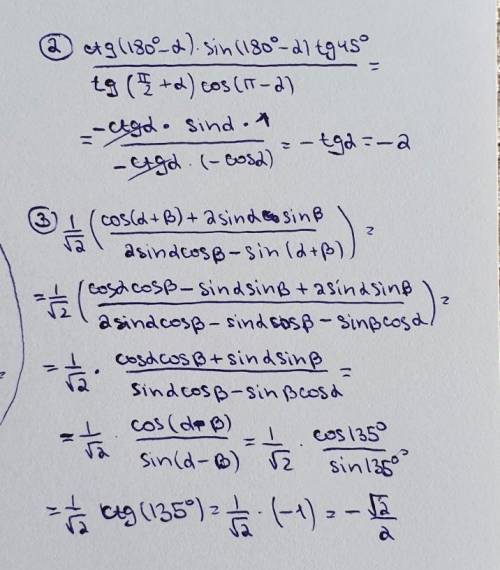 ② ctg(180°-α)·sin(180°-α) tg45° / tg(π/2+α) cos(π-α) =
= -ctgα · sinα · 1 / -ctgα · (-cosα) = -tgα = -2
③ 1/√2 (cos(α+β)+2sinα sinβ / 2sinαcosβ-sin(α+β)) =
= 1/√2 (cosαcosβ-sinαsinβ+2sinαsinβ / 2sinαcosβ-sinαcosβ-sinβcosα) =
= 1/√2 · cosαcosβ+sinαsinβ / sinαcosβ-sinβcosα =
= 1/√2 · cos(α-β) / sin(α-β) = 1/√2 · cos135° / sin135° =
= 1/√2 ctg(135°) = 1/√2 · (-1) = -√2/2